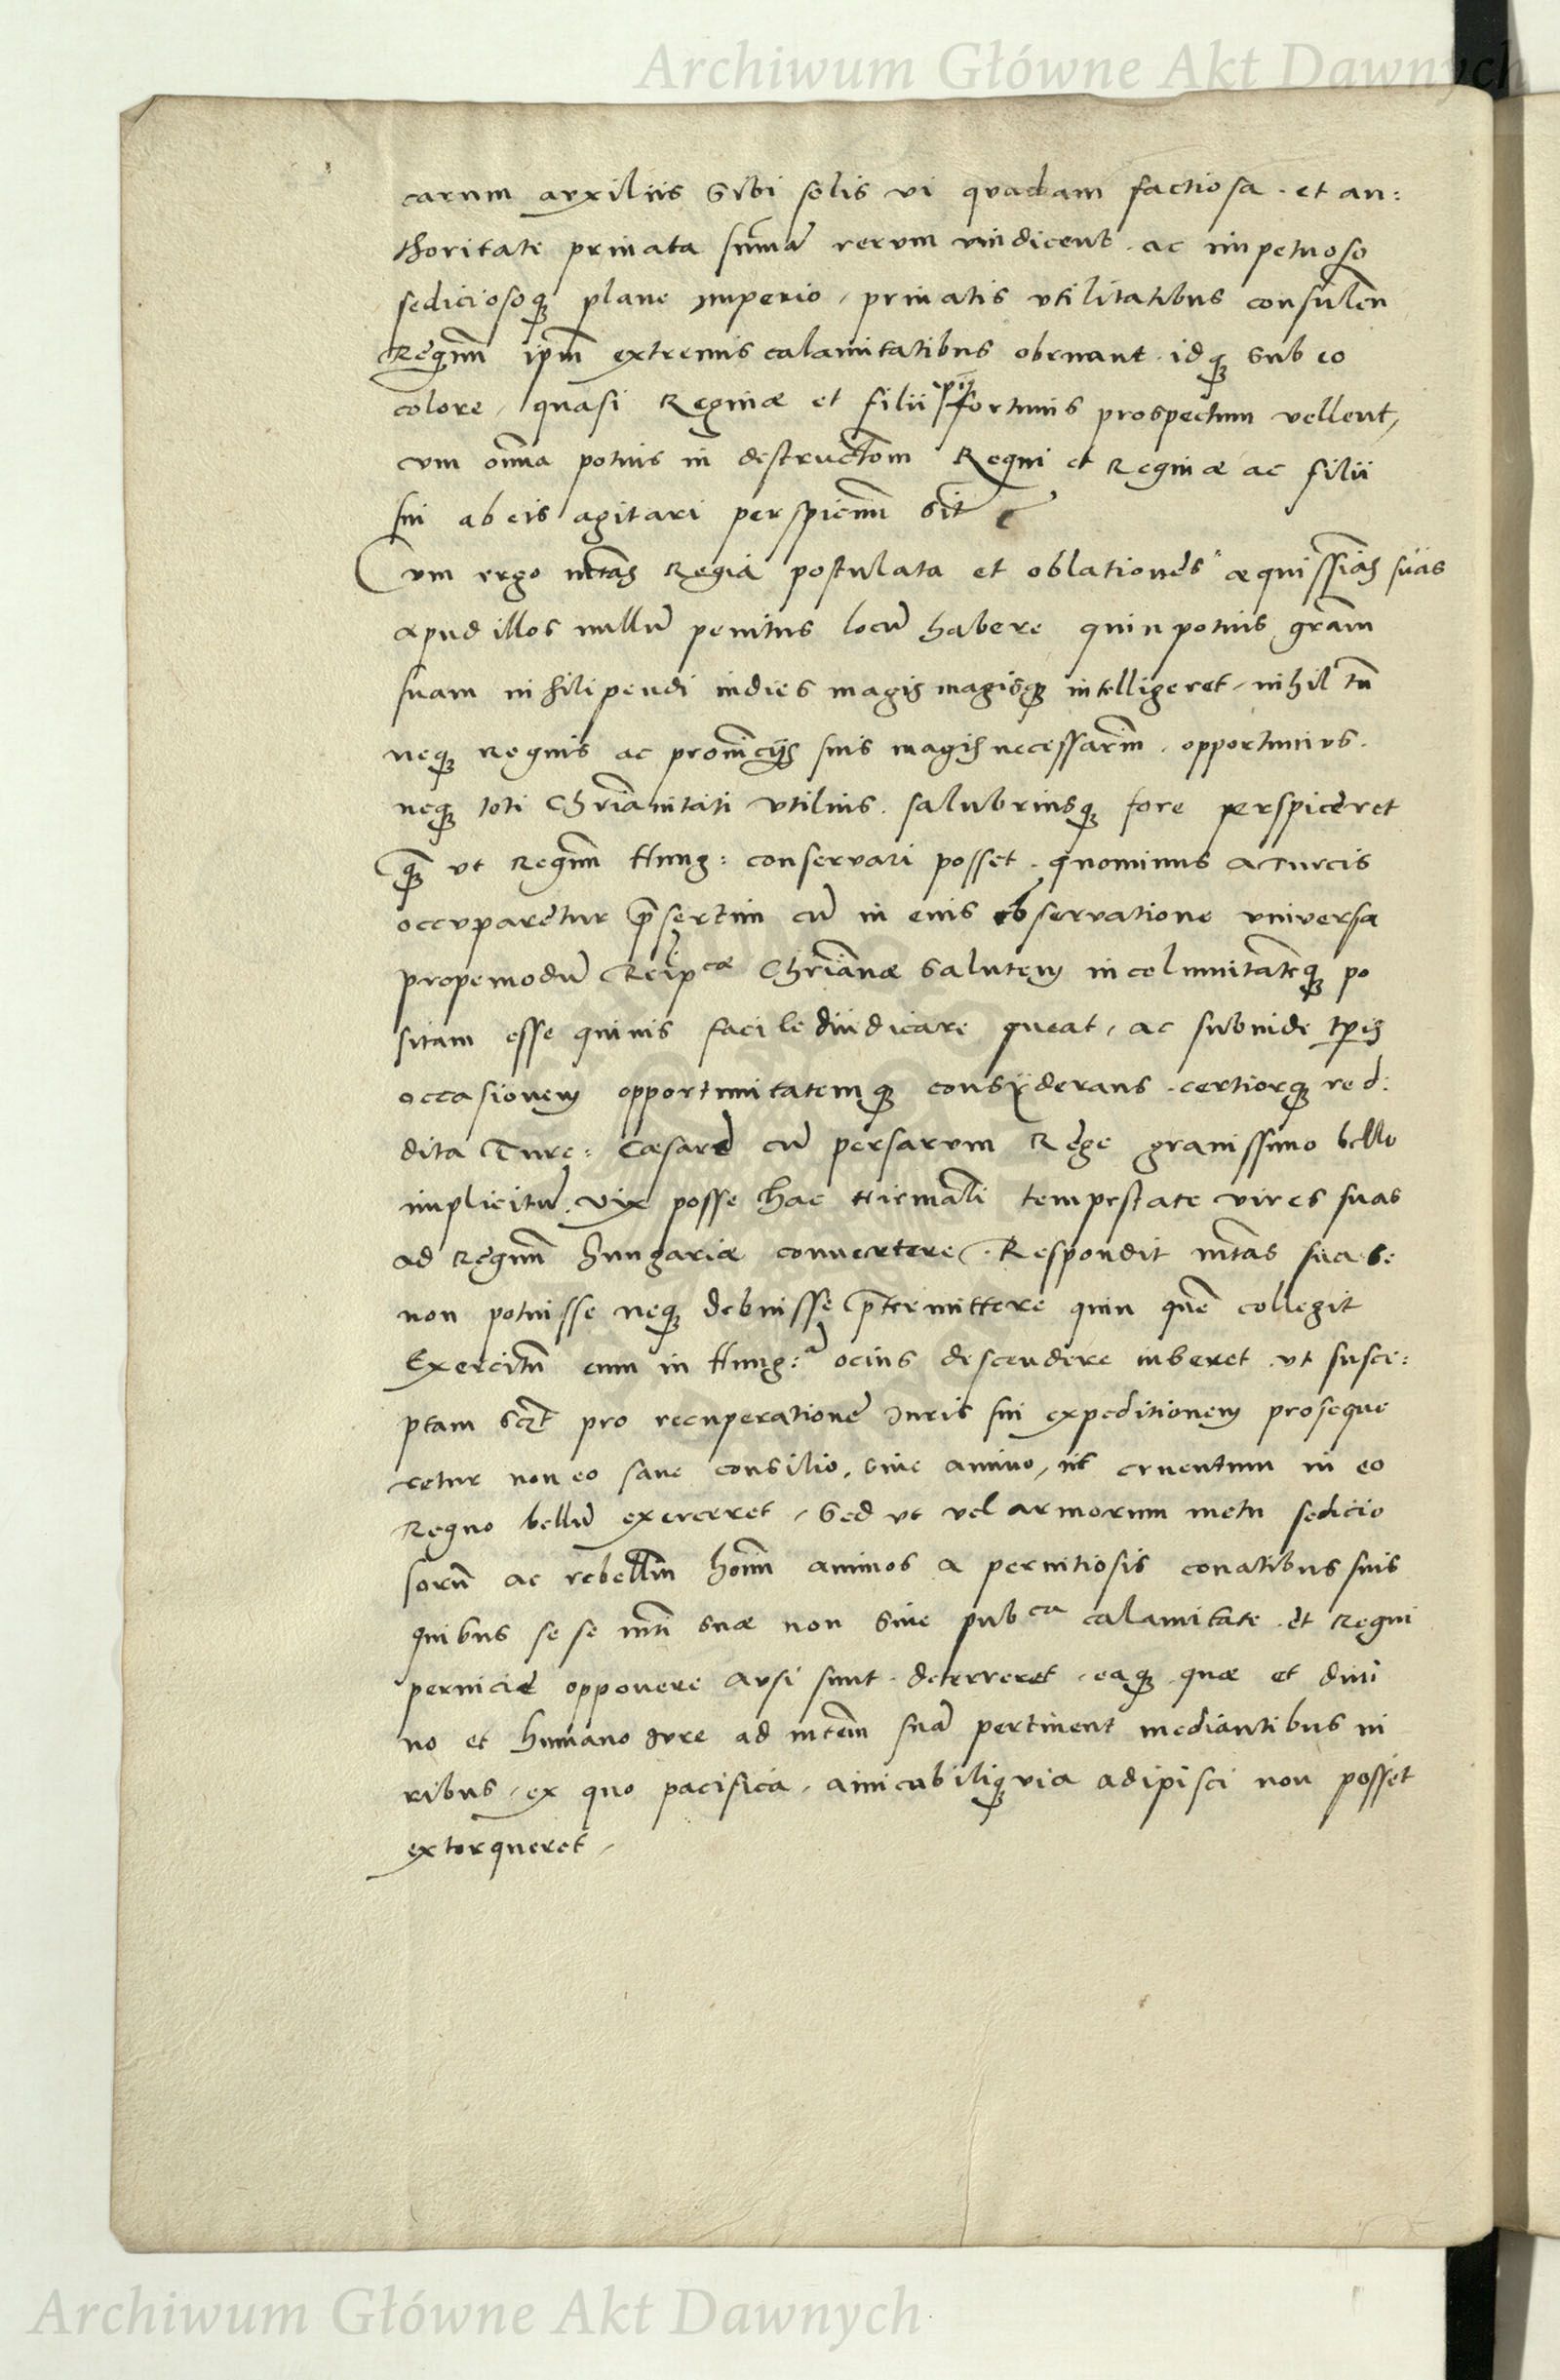 Archiwum Główne Akt Dawnych
carum auxiliis sibi solis vi quadam factiosa . et au:
thoritate priuata sum̄ā rerum vindicent . ac impetuoso
sediciosoqꝫ plane imperio, priuatis vtilitatibus consulen̄
Regnū̄ ipm̄ extremis calamitatibus obruant . idqꝫ sub eo
colore, quasi Reginæ et filii fortunis prospectum vellent,
cum om̄ia potius in destructōm Regni et Reginæ ac filii
sui ab eis agitari perspicuū sit
Cum ergo mtās Regia postulata et oblationes æquissīas suas
apud illos nullū penitus locū habere quin potius grām
suam nihilipendi indies magis magisqꝫ intelligeret, nihil tn̄
neqꝫ Regnis ac prouīcijs suis magis necessariū . opportunius .
neqꝫ toti Chrīanitati vtilius . salubriusqꝫ fore perspiceret
q̄ꝫ vt Regnū Hung: conseruari posset . quominus a Turcis
occuparetur p̄sertim cū in eius obseruatione vniuersa
propemodū Reipcæ Chrīanæ salutem incolumitatēqꝫ po
sitam esse quiuis facile diiudicare queat, ac subinde tp̄is
occasionem opportunitatemqꝫ consyderans . certiorqꝫ red:
dita Turc: Cæsarē cū Persarum Rege grauissimo bello
implicitū vix posse hac Hiemali tempestate vires suas
ad Regnū Hungariæ conuertere . Respondit mtās sua se
non potuisse neqꝫ debuisse p̄termittere quin quē collegit
Exercitū eum in Hung:ā ocius descendere iuberet . vt susce:
ptam sczt pro recuperationē Iuris sui expeditionem proseque
retur non eo sane consilio, siue animo, ut cruentum in eo
Regno bellū exerceret, Sed vt vel armorum metu sedicio
sorū ac rebelliū hoīm animos a pernitiosis conatibus suis
quibus se se mti suæ non sine pubca calamitate . et Regni
pernicie opponere ausi sunt . deterreret . eaqꝫ quæ et diui
no et humano Iure ad mtem̄ suā pertinent mediantibus ui
ribus, ex quo pacifica, amicabiliqꝫ via adipisci non posset
extorqueret,
Archiwum Główne Akt Dawnych